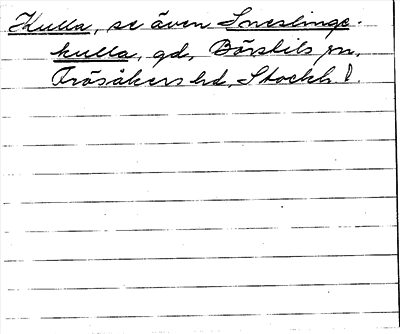 Kulla, se även Sneslinge-
kulla, gd, Börstils sn,
Frösåkers hd, Stockh. l.